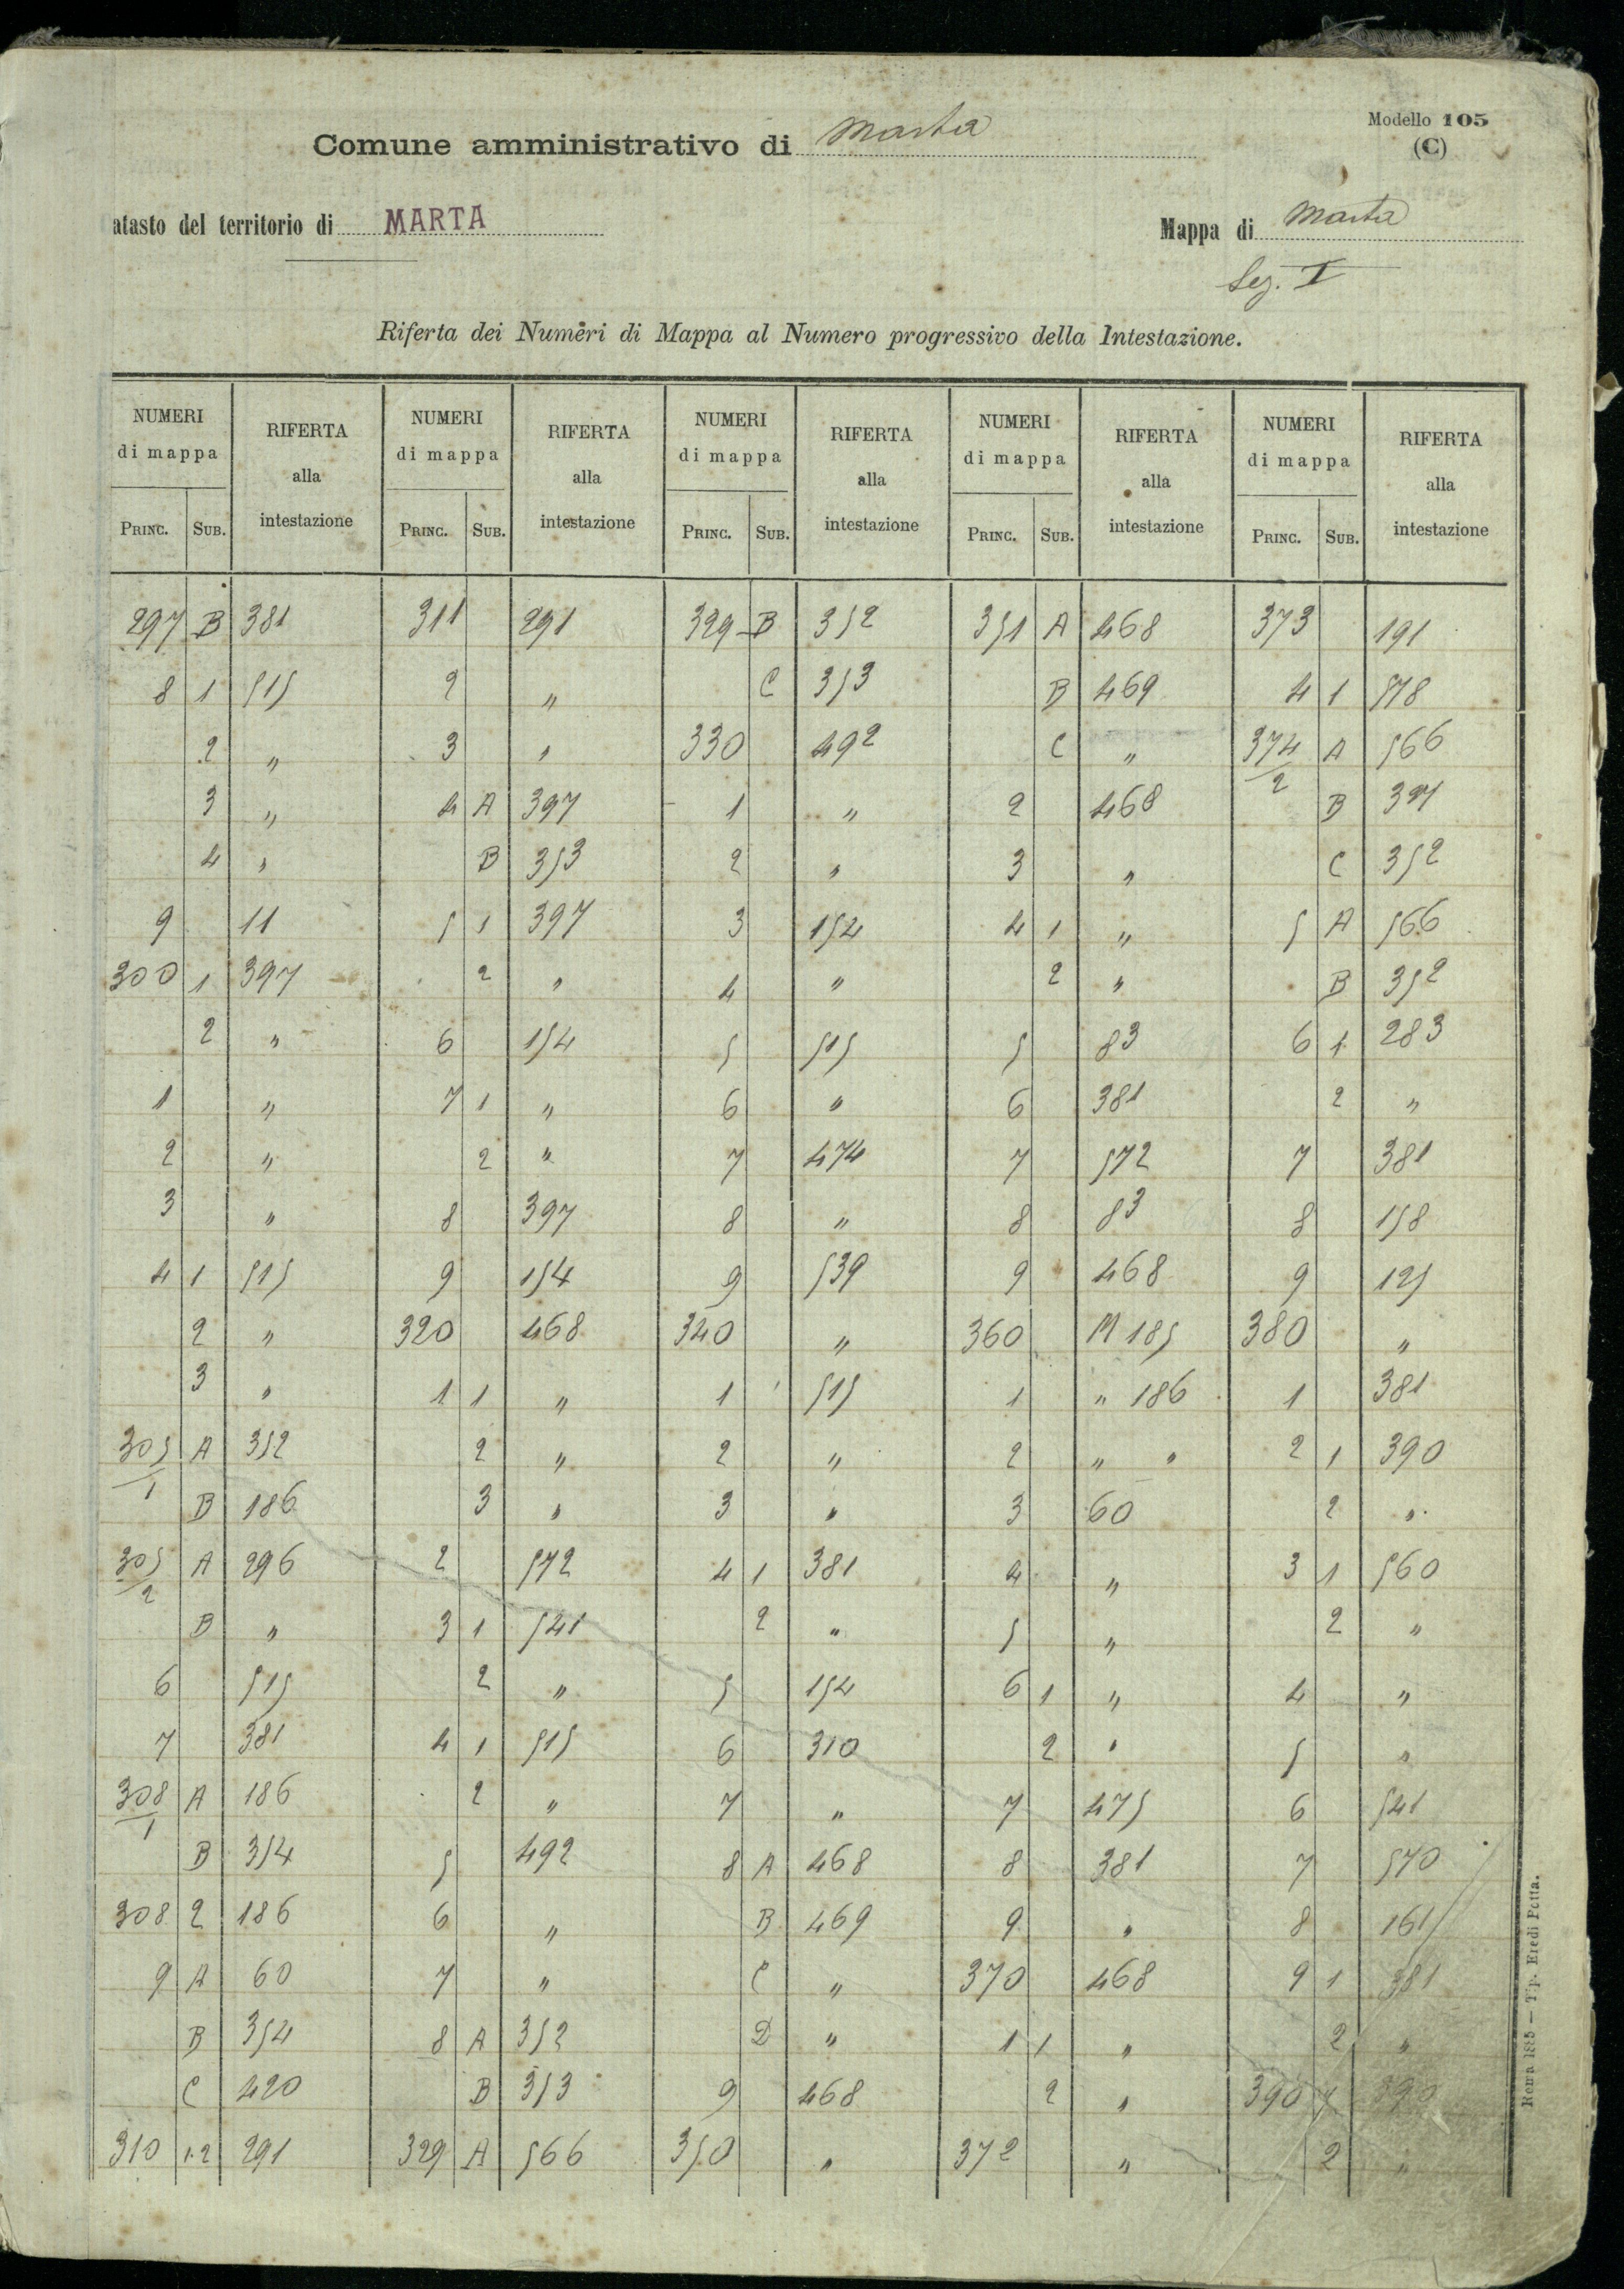 Modello 105
(C)
Comune amministrativo di Marta
atasto del territorio di MARTA
Mappa di Marta
Sez. I
Riferta dei Numeri di Mappa al Numero progressivo della Intestazione.
NUMERI di mappa RIFERTA alla intestazione NUMERI di mappa RIFERTA alla intestazione NUMERI di mappa RIFERTA alla intestazione NUMERI di mappa RIFERTA alla intestazione NUMERI di mappa RIFERTA alla intestazione
PRINC. SUB. PRINC. SUB. PRINC. SUB. PRINC. SUB. PRINC. SUB.
297 B 381 311 291 329 B 352 351 A 468 373 191
8 1 515 2 " C 353 B 469 4 1 578
2 " 3 " 330 492 C " 374/2 A 566
3 " 4 A 397 1 " 2 468 B 397
4 " B 353 2 " 3 " C 352
9 11 5 1 397 3 154 4 1 " 5 A 566
300 1 397 2 " 4 " 2 " B 352
2 " 6 154 5 515 5 83 6 1 283
1 " 7 1 " 6 " 6 381 2 "
2 " 2 " 7 474 7 572 7 381
3 " 8 397 8 " 8 83 8 158
4 1 515 9 154 9 539 9 468 9 125
2 " 320 468 340 " 360 M 185 380 "
3 " 1 1 " 1 515 1 " 186 1 381
305/1 A 352 2 " 2 " 2 " " 2 1 390
B 186 3 " 3 " 3 60 2 "
305/2 A 296 2 572 4 1 381 4 " 3 1 560
B " 3 1 541 2 " 5 " 2 "
6 515 2 " 5 154 6 1 " 4 "
7 381 4 1 515 6 310 2 " 5 "
308/1 A 186 2 " 7 " 7 475 6 541
B 354 5 492 8 A 468 8 381 7 570
308 2 186 6 " B 469 9 " 8 161
9 A 60 7 " C " 370 468 9 1 381
B 354 8 A 352 D " 1 1 " 2 "
C 420 B 353 9 468 2 " 390 390
310 1.2 291 329 A 566 350 " 372 " 2 "
Roma 1885 — Tip. Eredi Botta.